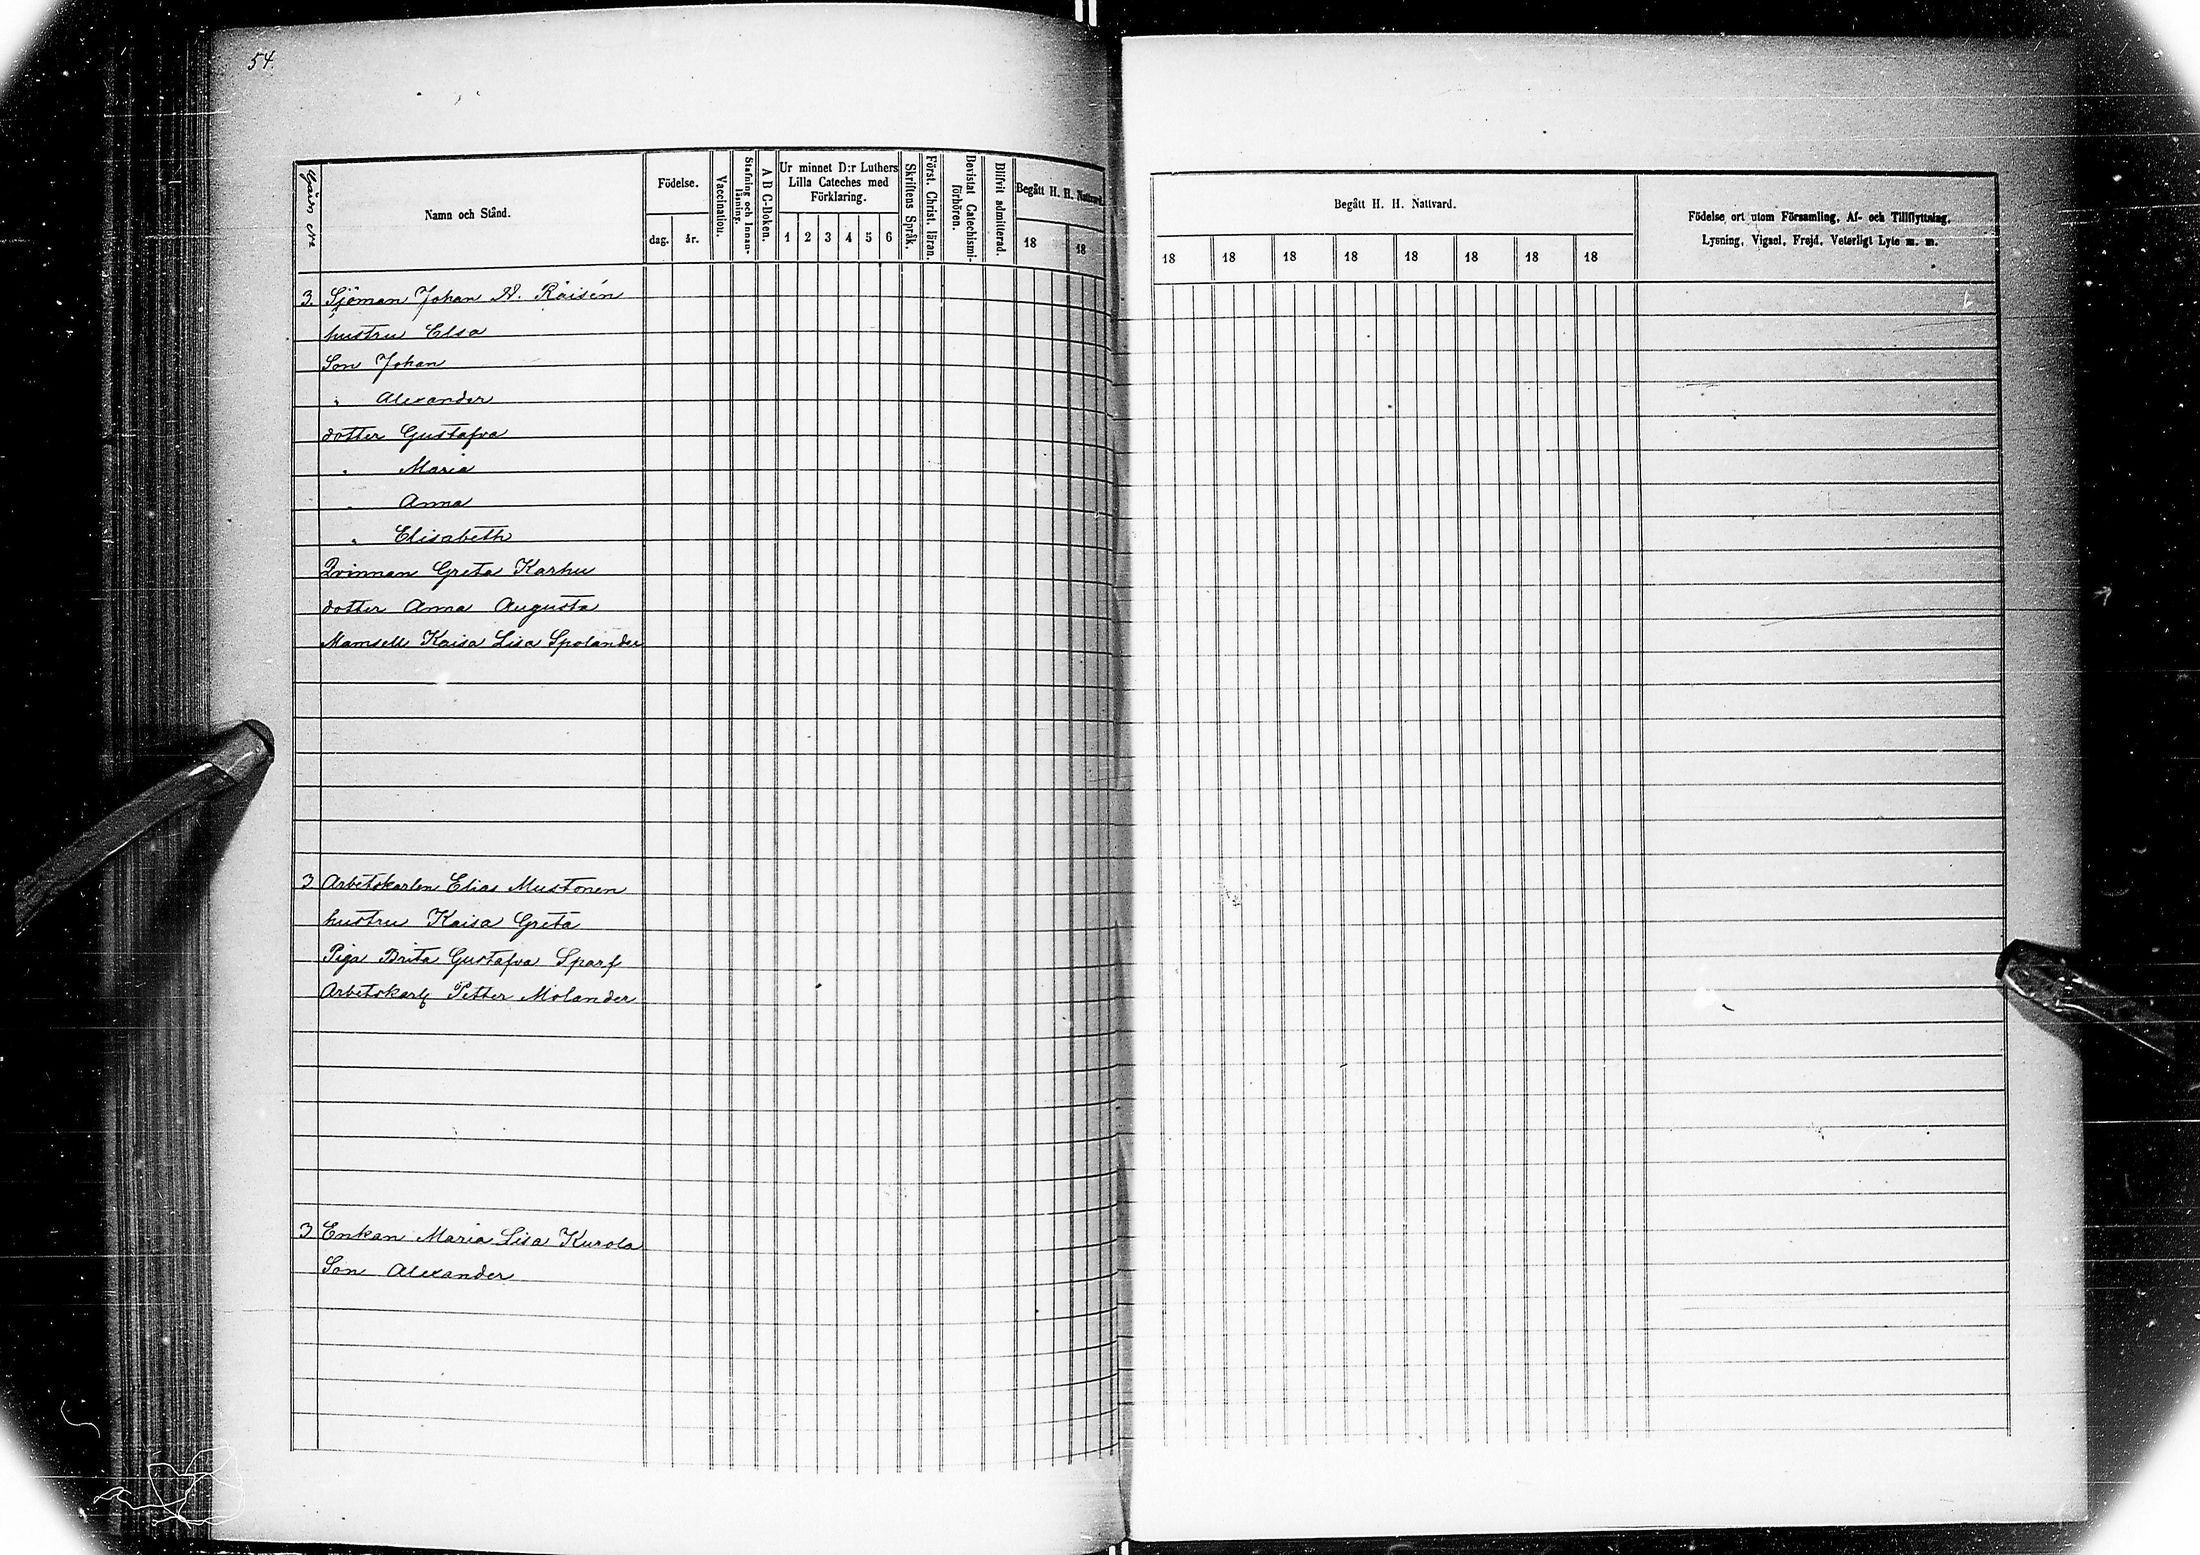 54.
Gård No
Namn och Stånd.
Födelse.
dag.
år.
Vaccination.
Stafning och Innan-
läsning.
A B C-Boken.
Ur minnet D:r Luthers
Lilla Cateches med
Förklaring.
1 2 3 4 5 6
Skriftens Språk.
Först. Christ. läran.
Bevistat Catechismi-
förhören.
Blifvit admitterad.
Begått H. H. Nattvard.
18 18
Begått H. H. Nattvard.
18 18 18 18 18 18 18 18
Födelse ort utom Församling, Af- och Tillflyttning,
Lysning, Vigsel, Frejd, Veterligt Lyte m. m.
3. Sjöman Johan A. Räisén
hustru Elsa
Son Johan
" Alexander
dotter Gustafva
" Maria
" Anna
" Elisabeth
Qvinnan Greta Karhu
dotter Anna Augusta
Mamsell Kaisa Lisa Spolander
3 Arbetskarlen Elias Mustonen
hustru Kaisa Greta
Piga Brita Gustafva Sparf
Arbetskarl Petter Molander
3 Enkan Maria Lisa Kurola
Son Alexander